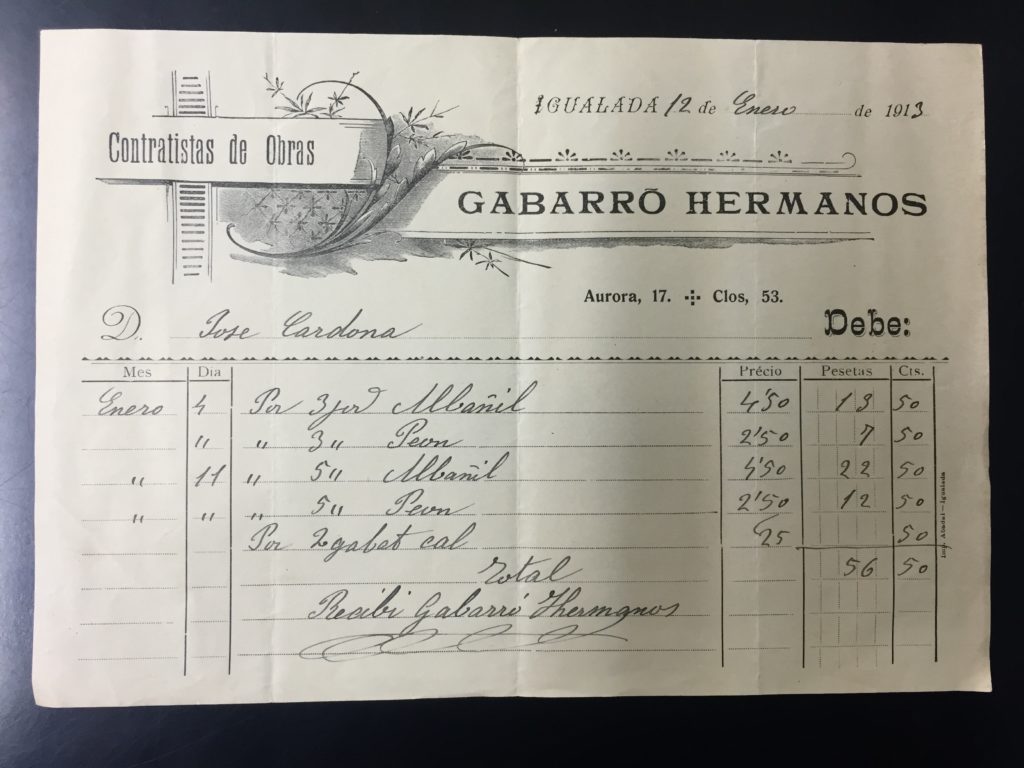 IGUALADA 12 de Enero de 1913
Contratistas de Obras
GABARRÓ HERMANOS
Aurora, 17. Clos, 53.
D. Jose Cardona Debe:
Mes Dia Précio Pesetas Cts.
Enero 4 Por 3 jord Albañil 4'50 13 50
" " 3 " Peon 2'50 7 50
" 11 " 5 " Albañil 4'50 22 50
" " " 5 " Peon 2'50 12 50
Por 2 gabet cal 25 50
Total 56 50
Recibi Gabarró Hermanos
Imp. Abadal—Igualada